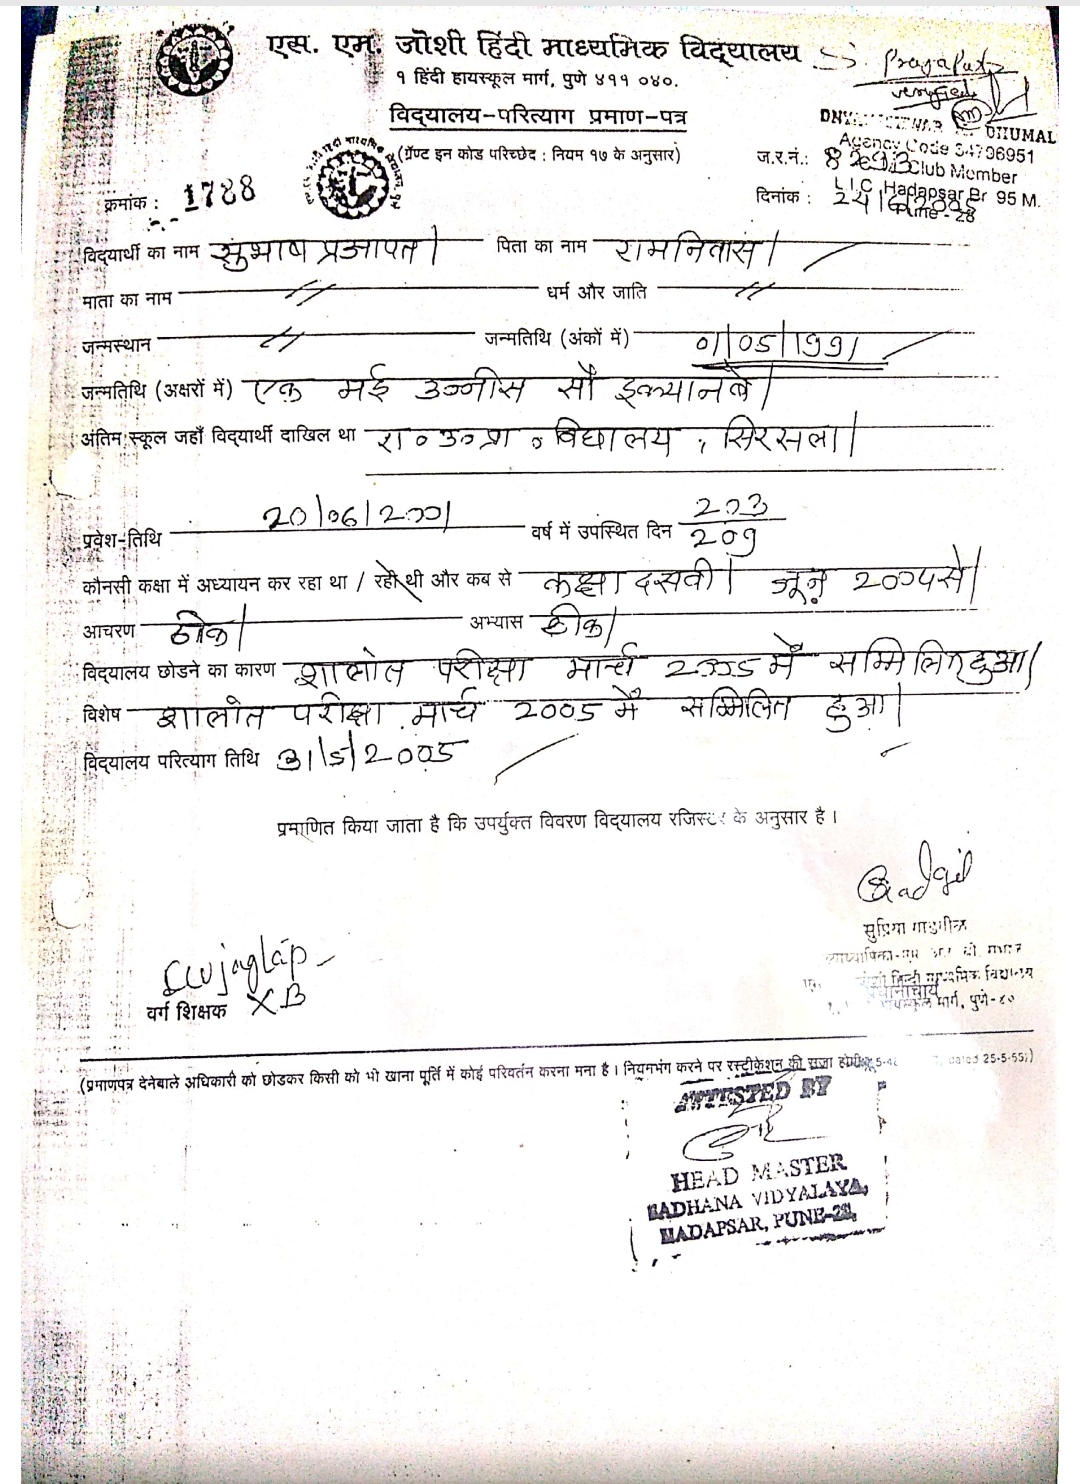 एस. एम. जोशी हिंदी माध्यमिक विद्यालय
१ हिंदी हायस्कूल मार्ग, पुणे ४११ ०४०.
Prajapati
verified
विद्यालय-परित्याग प्रमाण-पत्र
DHUMAL
(ग्रॅण्ट इन कोड परिच्छेद : नियम १७ के अनुसार)
Agency Code 34796951
ज.र.नं.:
Club Member
क्रमांक : 1788
LIC Hadapsar Br 95 M.
दिनांक :
Pune - 28
विद्यार्थी का नाम सुभाष प्रजापत। पिता का नाम रामनिवास।
माता का नाम — // — धर्म और जाति — //
जन्मस्थान — // — जन्मतिथि (अंकों में) 01/05/1991
जन्मतिथि (अक्षरों में) एक मई उन्नीस सौ इक्यानबे।
अंतिम स्कूल जहाँ विद्यार्थी दाखिल था रा०उ०प्रा०विद्यालय, सिरसला।
प्रवेश-तिथि 20/06/2001 वर्ष में उपस्थित दिन 203/209
कौनसी कक्षा में अध्यायन कर रहा था / रही थी और कब से कक्षा दसवी। जून 2004 से।
आचरण ठीक। अभ्यास ठीक।
विद्यालय छोडने का कारण शालांत परीक्षा मार्च 2005 में सम्मिलित हुआ।
विशेष शालांत परीक्षा मार्च 2005 में सम्मिलित हुआ।
विद्यालय परित्याग तिथि 31/5/2005
प्रमाणित किया जाता है कि उपर्युक्त विवरण विद्यालय रजिस्टर के अनुसार है।
Gadgil
सुप्रिया गाडगीळ
हिन्दी माध्यमिक विद्यालय
प्रधानाचार्य
मार्ग, पुणे-४०
वर्ग शिक्षक X B
(प्रमाणपत्र देनेबाले अधिकारी को छोडकर किसी को भी खाना पूर्ति में कोई परिवर्तन करना मना है। नियमभंग करने पर रस्टीकेशन की सजा होगी। dated 25-5-55)
ATTESTED BY
HEAD MASTER
SADHANA VIDYALAYA,
HADAPSAR, PUNE-28.